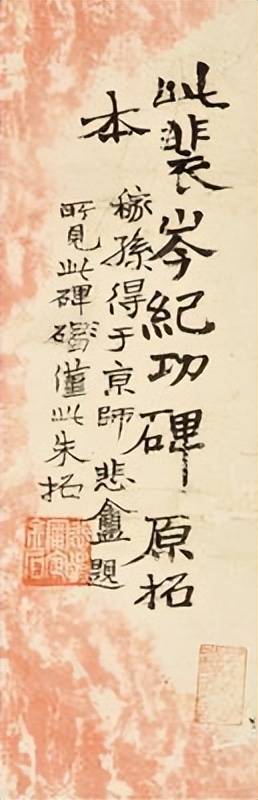 此裴岑紀功碑原拓
本
稼孫得于京師悲盦題
所見此碑僅此朱拓